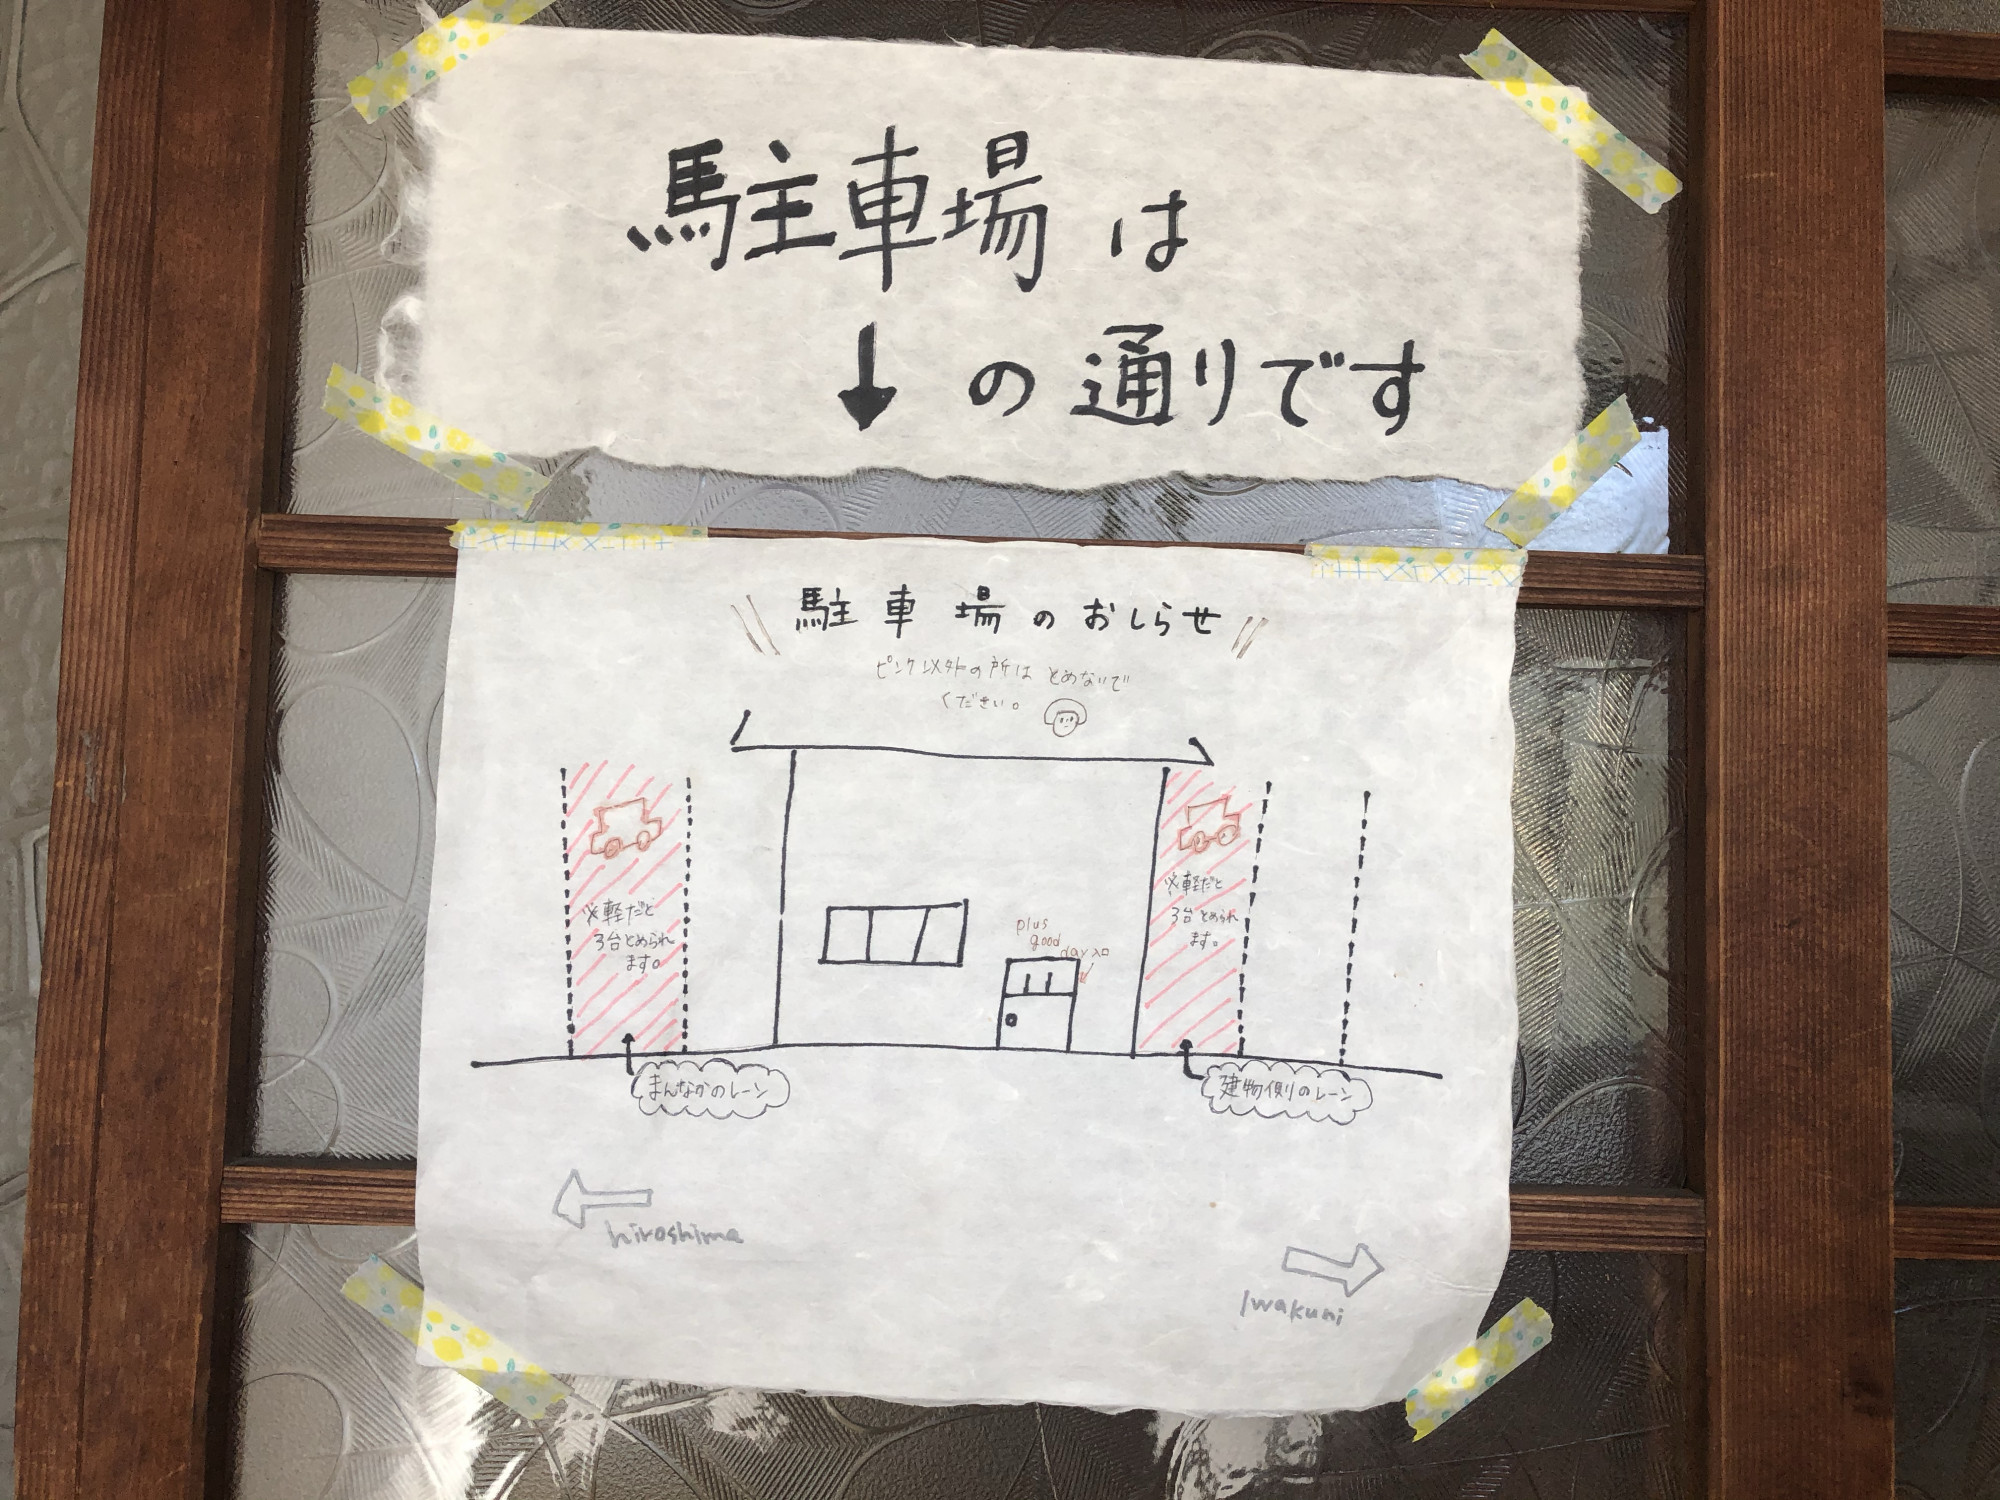 駐車場は
↓の通りです
駐車場のおしらせ
ピンク以外の所はとめないで
ください。
※軽だと
3台とめられ
ます。
plus
good
day入口
※軽だと
3台とめられ
ます。
まんなかのレーン
建物側のレーン
hiroshima
Iwakuni